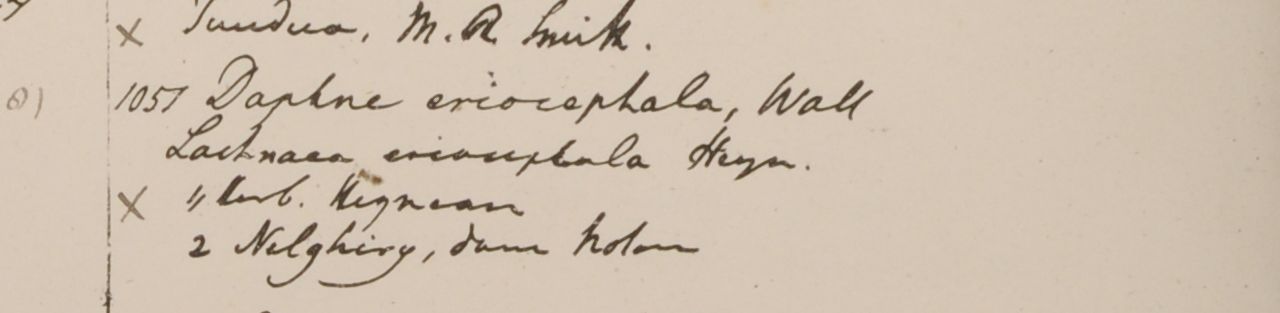 × Tundua, M. R. Smith.
1051 Daphne eriocephala, Wall
Lachnaea eriocephala Heyn.
× " Herb. Heynean
2 Nelghiry, dom Noton